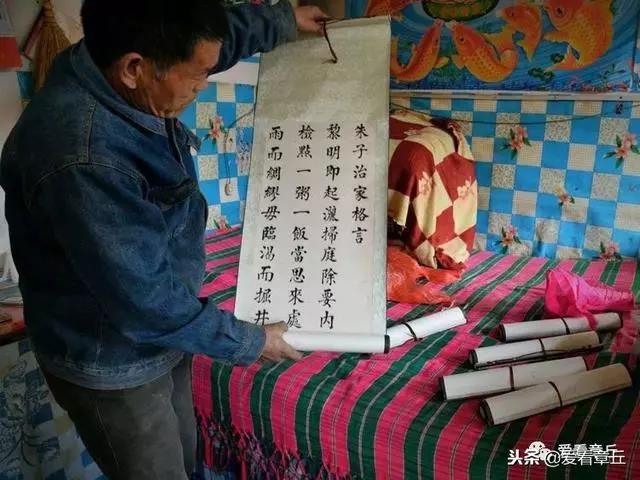 朱子治家格言
黎明即起灑掃庭除要内
檢點一粥一飯當思來處
雨而綢繆毋臨渴而掘井
爱看章丘
头条@爱看章丘